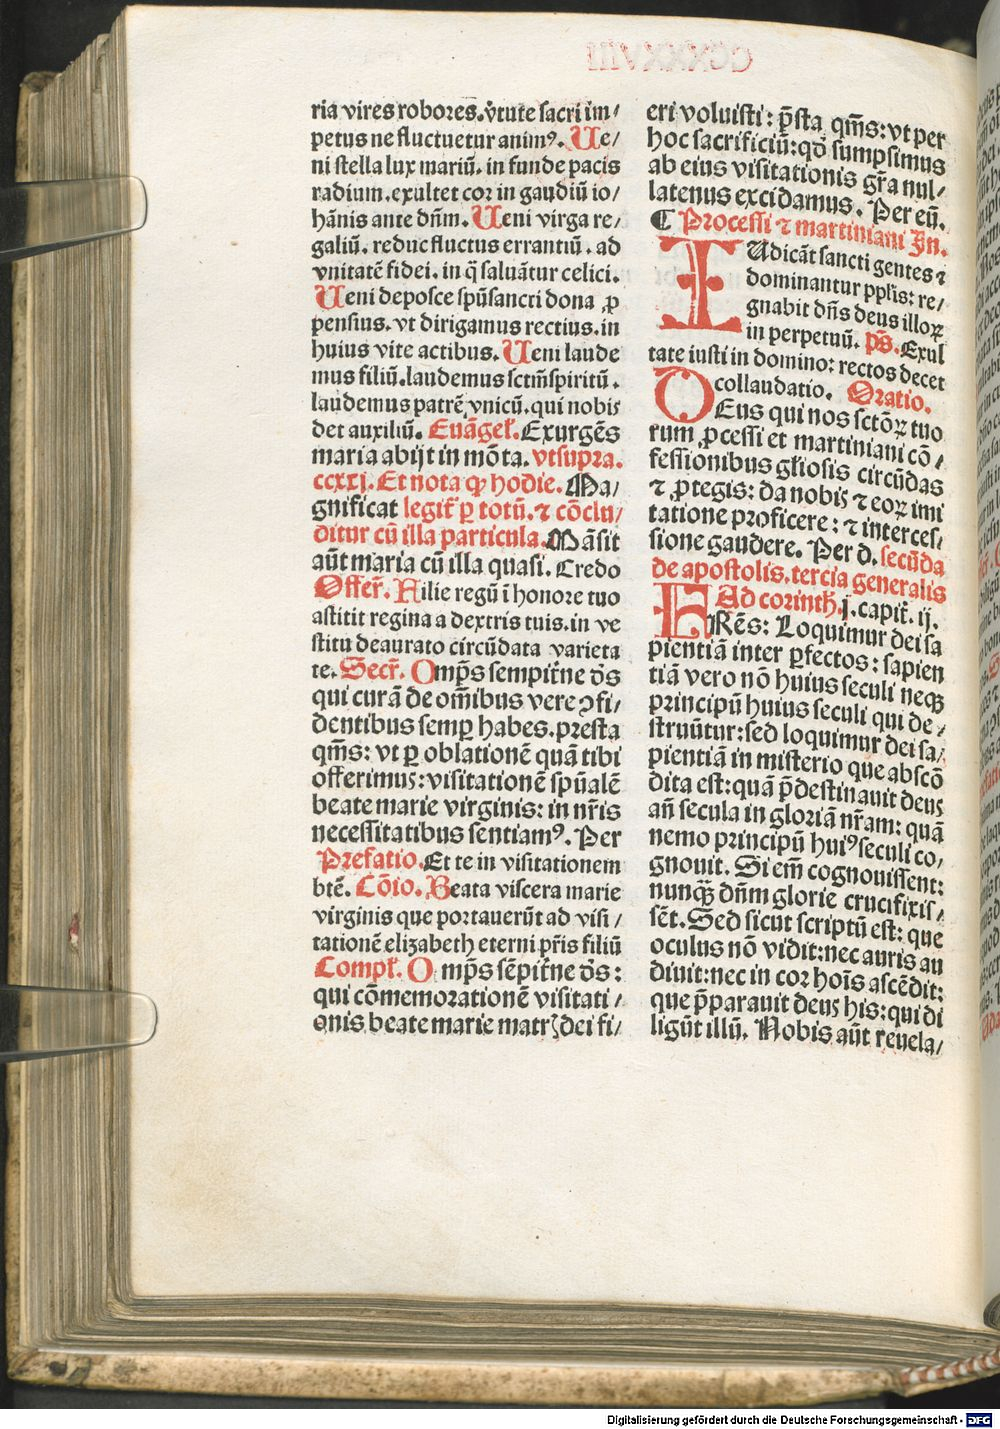 ria vires robores. v̄tute sacri im/
petus ne fluctuetur animꝰ. Ue/
ni stella lux mariū. in funde pacis
radium. exultet cor in gaudiū io/
hānis ante dn̄m. Ueni virga re/
galiū. reduc fluctus errantiū. ad
vnitatē fidei. in q̄ saluātur celici.
Ueni deposce spūsancri dona ꝓ
pensius. vt dirigamus rectius. in
huius vite actibus. Ueni laude
mus filiū. laudemus sctm̄spiritū.
laudemus patrē vnicū. qui nobis
det auxiliū. Euāgel̄. Exurgēs
maria abijt in mōta. vtsupra.
ccxxj. Et nota ꝙ hodie. Ma/
gnificat legit̄ ꝑ totū. ⁊ cōclu/
ditur cū illa particula. Māsit
aūt maria cū illa quasi. Credo
Offer̄. Filie regū ī honore tuo
astitit regina a dextris tuis. in ve
stitu deaurato circūdata varieta
te. Secr̄. Omp̄s sempit̄ne ds̄
qui curā de om̄ibus vere ꝯfi/
dentibus semꝑ habes. presta
qm̄s: vt ꝑ oblationē quā tibi
offerimus: visitationē spūalē
beate marie virginis: in nr̄is
necessitatibus sentiamꝰ. Per
Prefatio. Et te in visitationem
btē. Cōio. Beata viscera marie
virginis que portauerūt ad visi/
tationē elizabeth eterni pr̄is filiū
Compl̄. Omp̄s sēpit̄ne ds̄:
qui cōmemorationē visitati/
onis beate marie matrꝫ dei fi/
eri voluisti: p̄sta qm̄s: vt per
hoc sacrificiū: qd̄ sumpsimus
ab eius visitationis gr̄a nul/
latenus excidamus. Per eū.
¶ Processi ⁊ martiniani In.
IUdicāt sancti gentes ⁊
dominantur ppl̄is: re/
gnabit dn̄s deus illoꝝ
in perpetuū. ps̄. Exul
tate iusti in domino: rectos decet
collaudatio. Oratio.
DEus qui nos sctōꝝ tuo
rum ꝓcessi et martiniani cō/
fessionibus gl̄iosis circūdas
⁊ ꝓtegis: da nobis ⁊ eoꝝ imi
tatione proficere: ⁊ interces/
sione gaudere. Per d. secūda
de apostolis. tercia generalis
Ad corinth̄. j. capit̄. ij.
FRēs: Loquimur dei sa
pientiā inter ꝑfectos: sapien
tiā vero nō huius seculi neqꝫ
principū huius seculi qui de/
struūtur: sed loquimur dei sa/
pientiā in misterio que abscō
dita est: quā p̄destinauit deus
an̄ secula in gloriā nr̄am: quā
nemo principū huiꝰ seculi co/
gnouit. Si em̄ cognouissent:
nunqꝫ̄ dn̄m glorie crucifixis/
sēt. Sed sicut scriptū est: que
oculus nō vidit: nec auris au
diuit: nec in cor hoīs ascēdit:
que p̄parauit deus his: qui di
ligūt illū. Nobis aūt reuela/
Digitalisierung gefördert durch die Deutsche Forschungsgemeinschaft - DFG